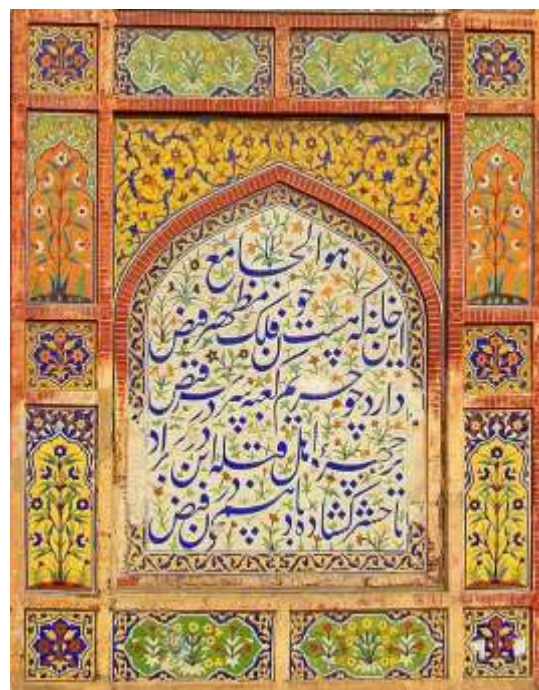 هوالجامع
این خانه که هست چون فلک مظهر فیض
دارد چو حریم کعبه در فیض
بر چهره اهل قبله این در مراد
تا حشر گشاده باد در فیض